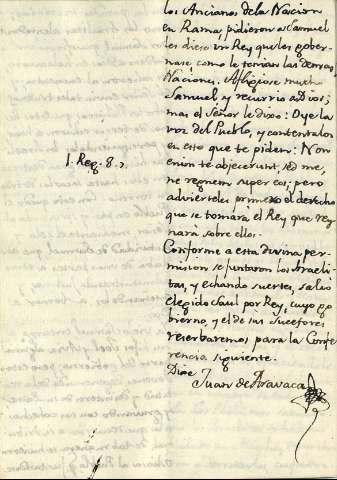 los Ancianos dela Nacion
en Rama, pidieron a Samuel
les diese un Rey que les gober-
nase, como le tenian las demas
Naciones. Afligiose mucho
Samuel y recurrio a Dios;
mas el Señor le dixo: Oye la
voz del Pueblo, y contentalos
en esto que te piden: Non
enim te abjecerunt, sed me,
1. Reg. 8. 7
ne regnem super eos; pero
adviérteles primero el derecho
que se tomará el Rey que rey-
nará sobre ellos.
Conforme a esta divina per-
mision se juntaron los Israeli-
tas, y echando suertes, salió
elegido Saul por Rey, cuyo go-
bierno, y el de sus Sucesores
reserbaremos para la Confe-
rencia siguiente.
Dixe
Juan de Aravaca